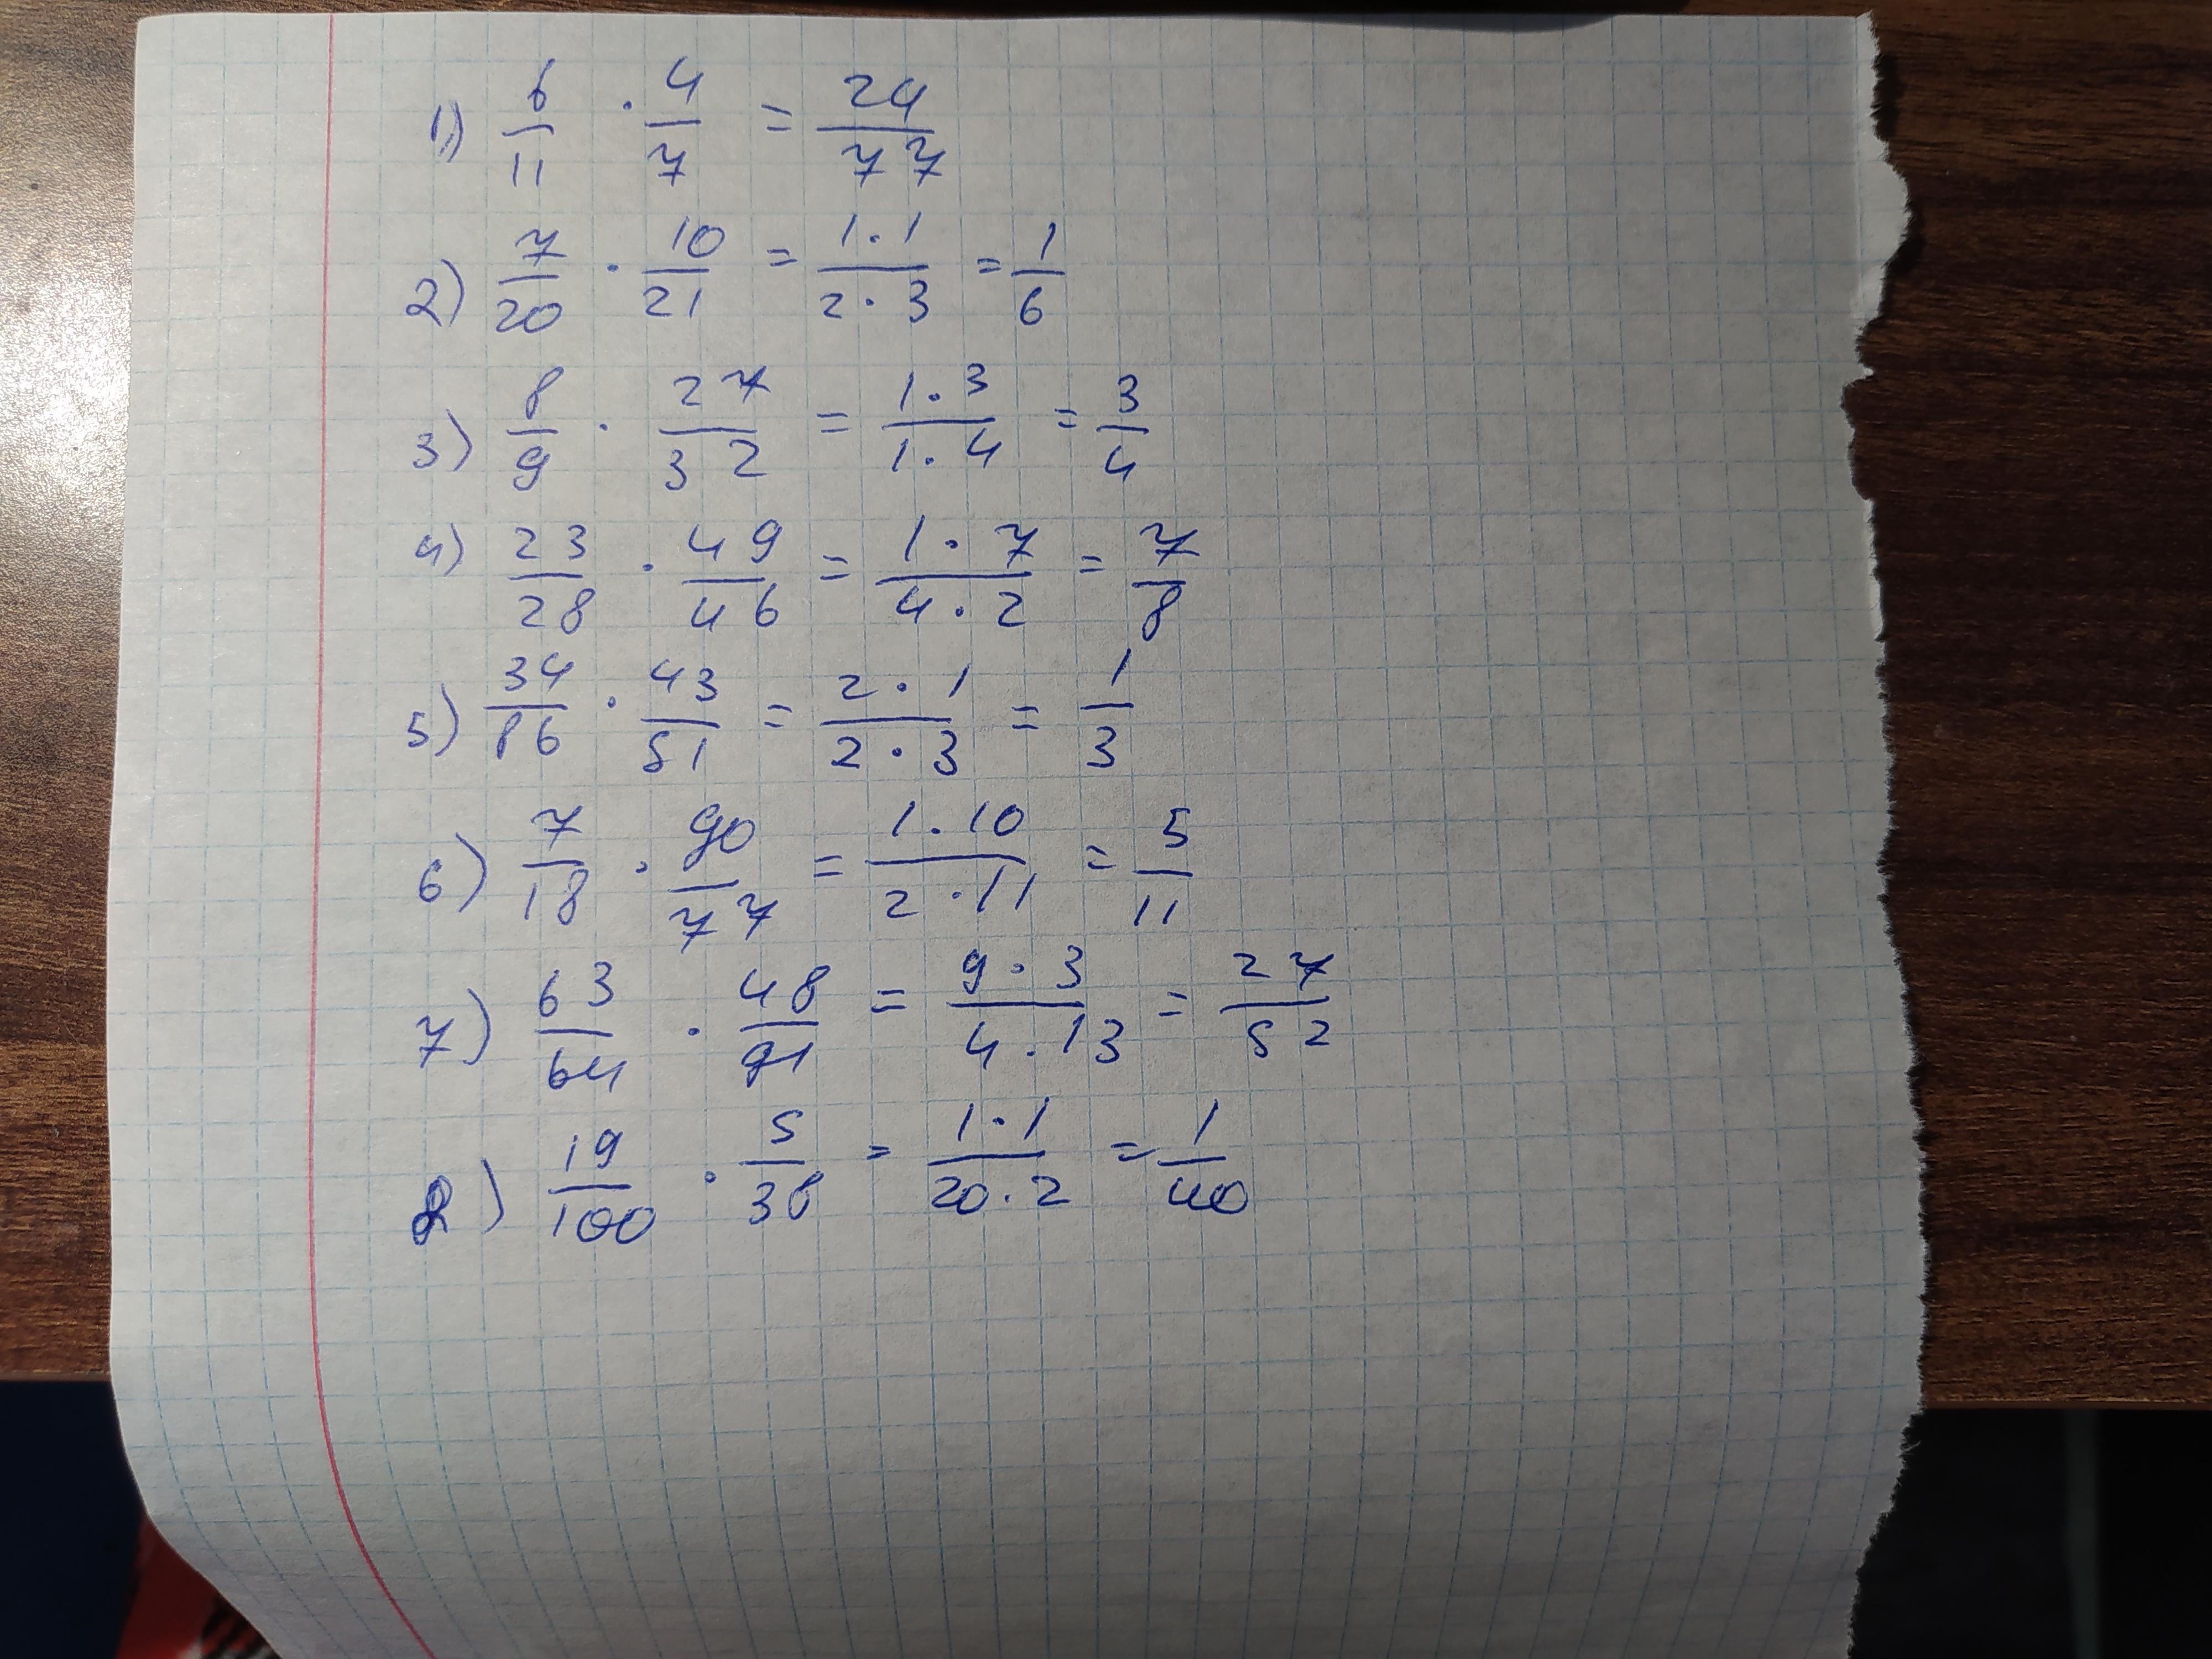 1) 6/11 · 4/7 = 24/77
2) 7/20 · 10/21 = 1·1/2·3 = 1/6
3) 8/9 · 27/32 = 1·3/1·4 = 3/4
4) 23/28 · 49/46 = 1·7/4·2 = 7/8
5) 34/86 · 43/51 = 2·1/2·3 = 1/3
6) 7/18 · 90/77 = 1·10/2·11 = 5/11
7) 63/64 · 48/91 = 9·3/4·13 = 27/52
8) 19/100 · 5/38 = 1·1/20·2 = 1/40